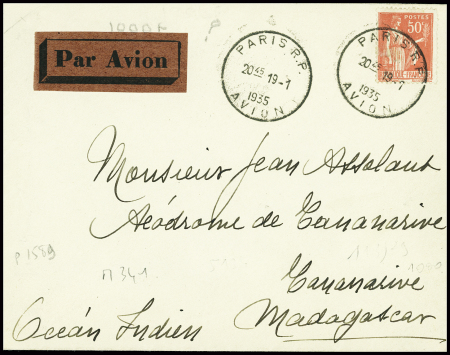 Par Avion
PARIS R.P.
20 45 19-1
1935
AVION
PARIS R.P.
20 45 19-1
1935
AVION
POSTES
50c
Monsieur Jean Assolant
Aéodrome de Tananarive
Tananarive
Madagascar
Océan Indien
P 1589